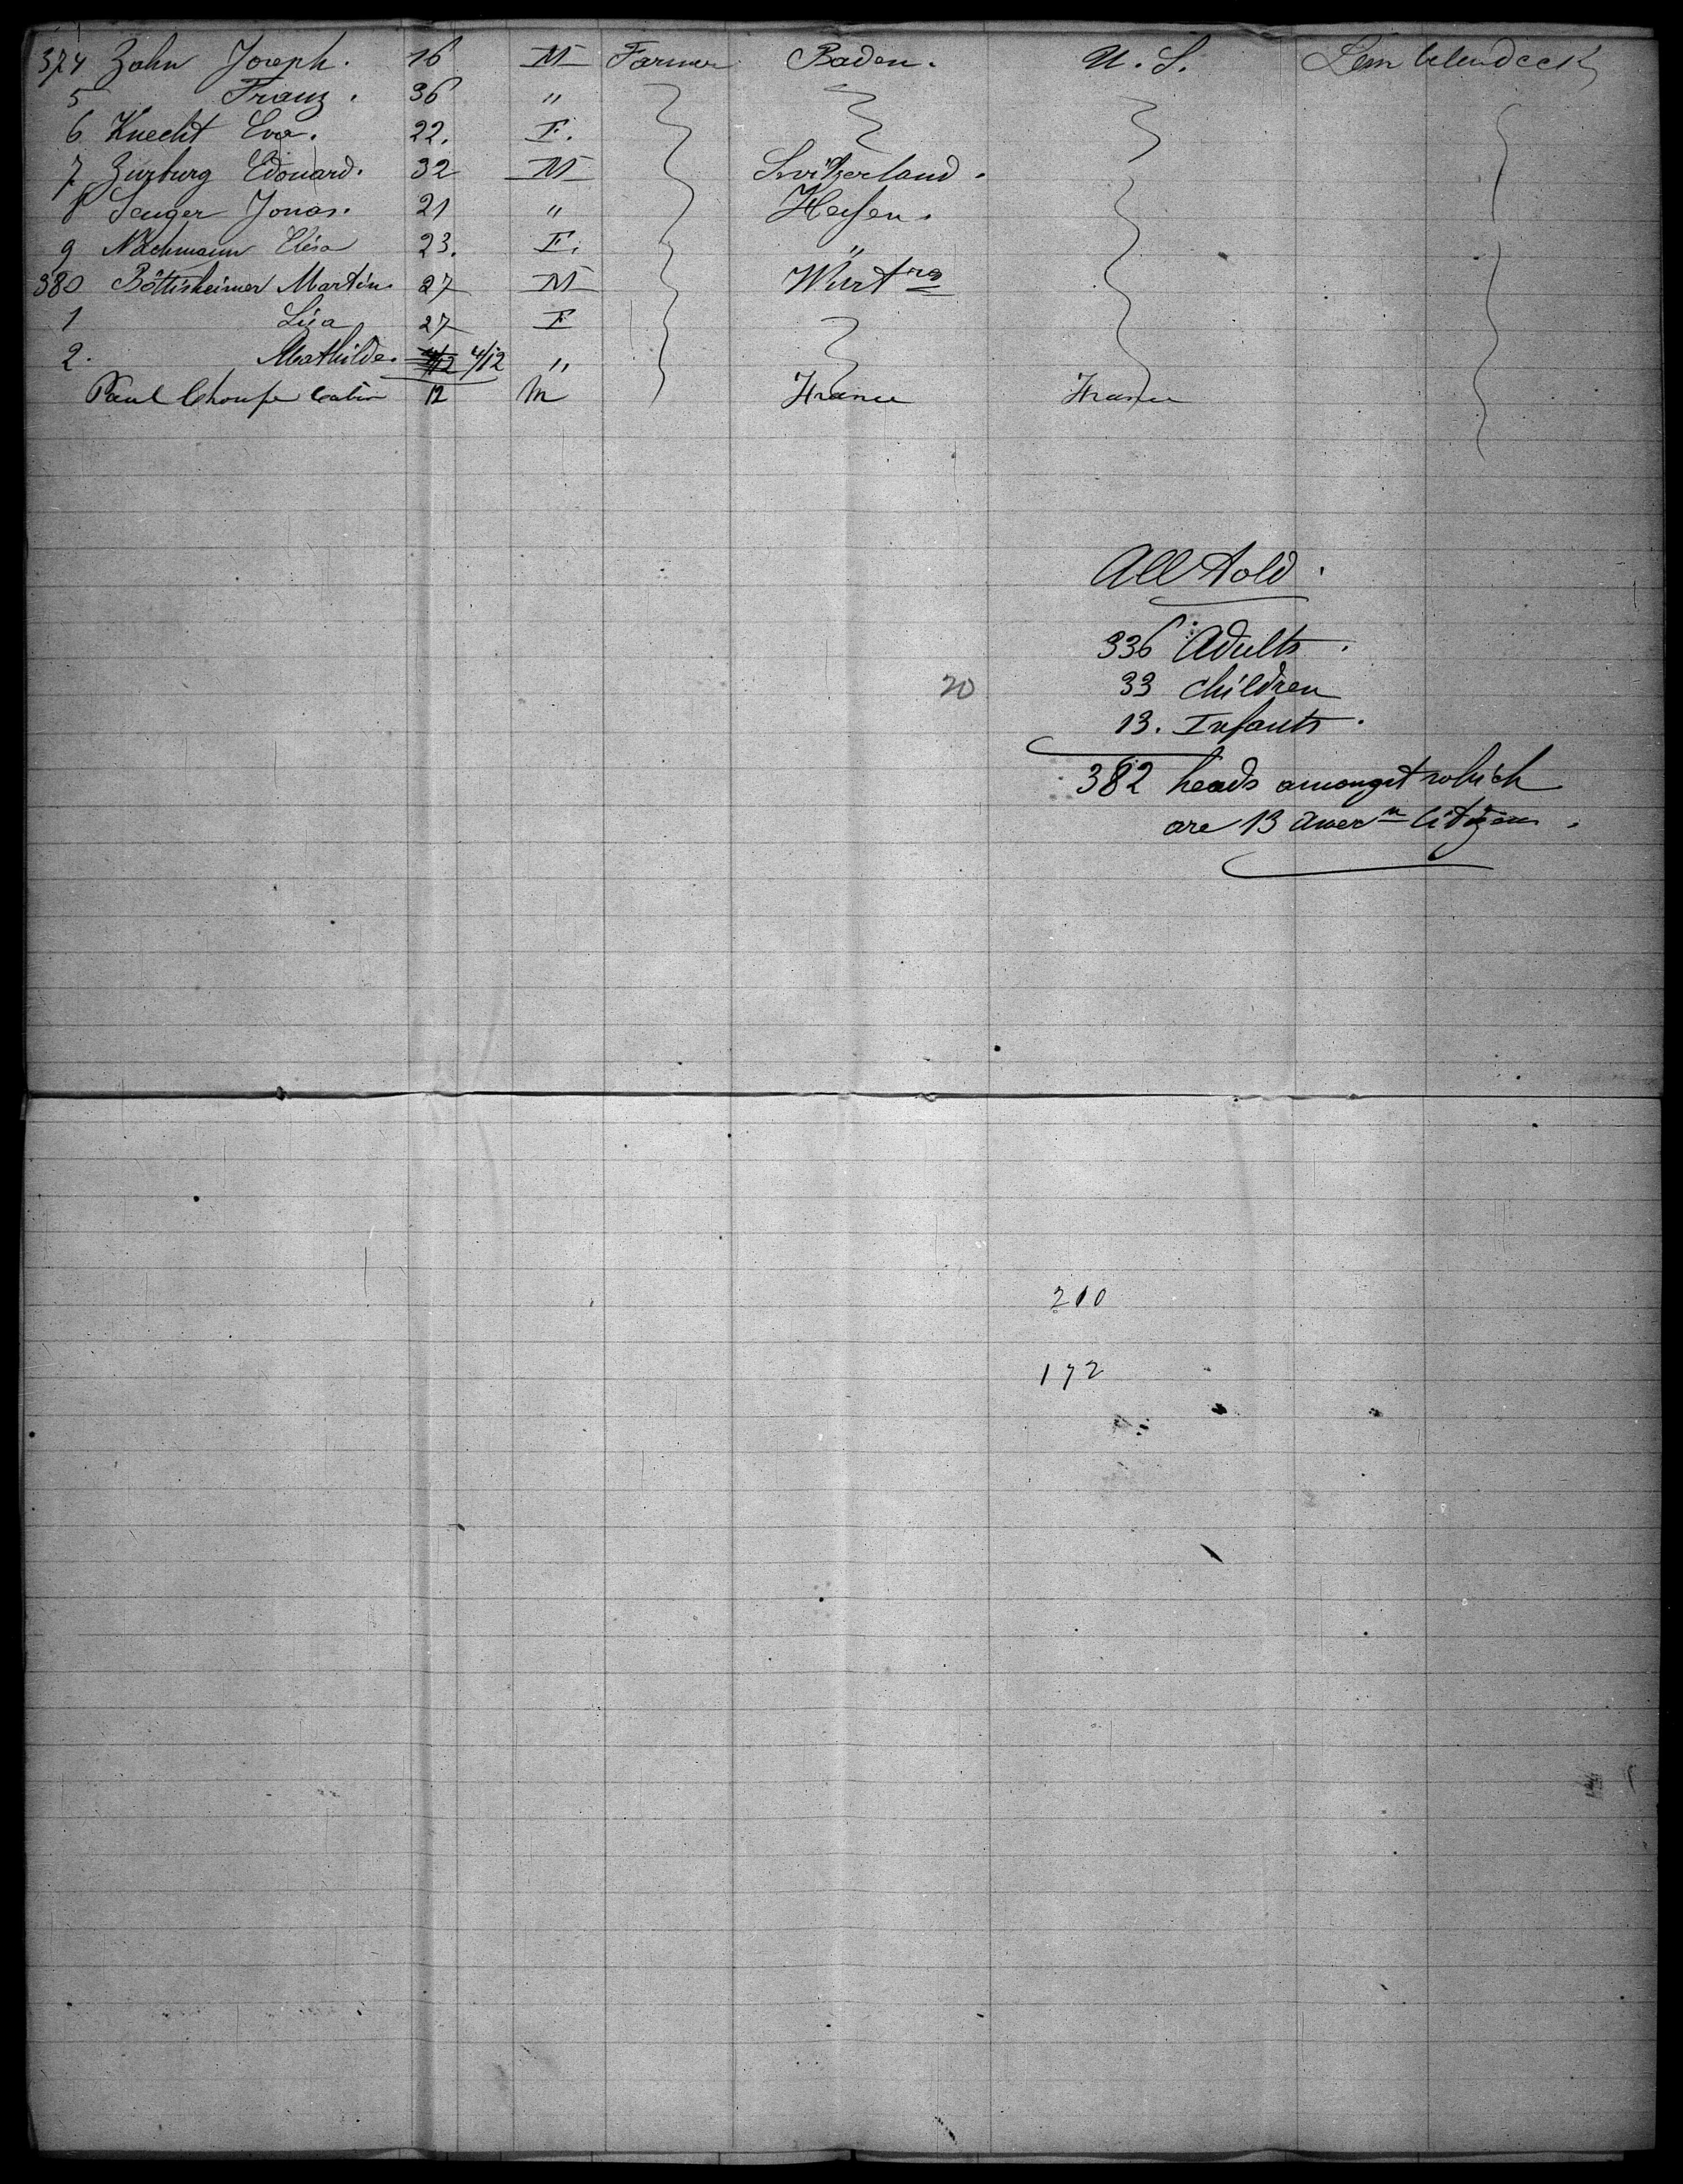 374 Zahn Joseph. 16 M Farmer Baden. U. S.
5 Franz. 36 "
6 Knecht Eva. 22. F.
7 Zurburg Edouard. 32 M Switzerland.
8 Senger Jonas. 21 " Hessen.
9 Nachmann Elisa 23. F. "
380 Böttisheimer Martin. 27 M Wurt rg
1 Lisa 27 F
2. Mathilde. 4/12 "
Paul 12 M France France
All told.
336 Adults.
33 children
13. Infants.
20
382 heads amongst which
are 13 Amer n Citizens.
210
172